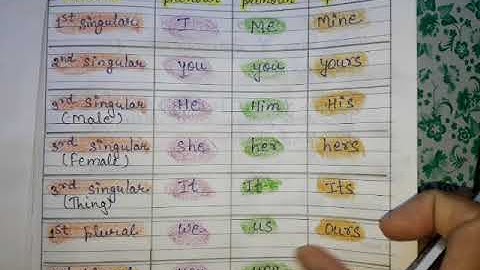 pronoun pronoun
1st singular I Me Mine
2nd singular you you yours
3rd singular He Him His
(Male)
3rd singular she her hers
(Female)
3rd singular It It Its
(Thing)
1st plural we us ours